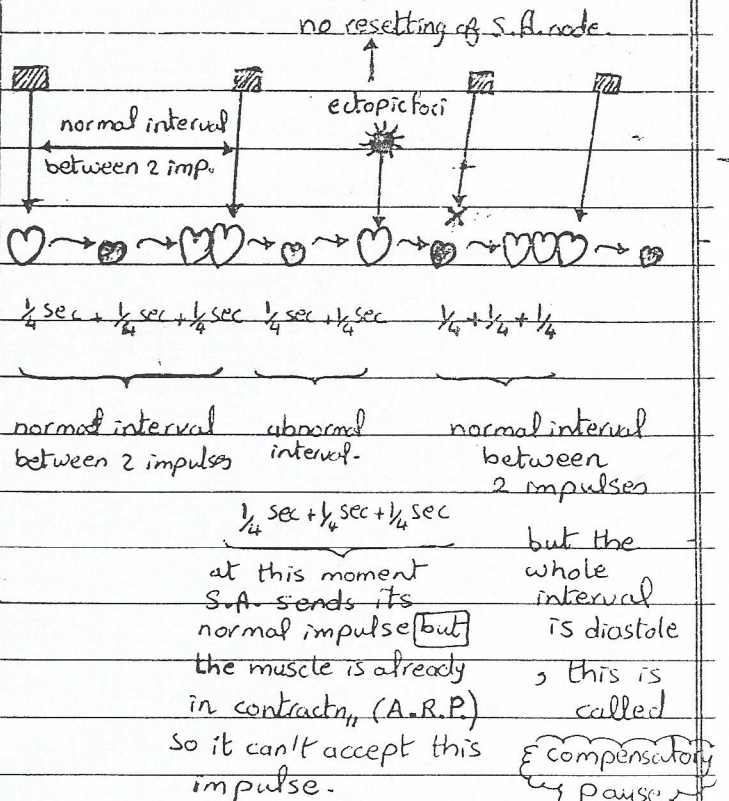 no resetting of S.A. node.
ectopic foci
normal interval
between 2 imp.
1/4 sec + 1/4 sec + 1/4 sec 1/4 sec + 1/4 sec 1/4 + 1/4 + 1/4
normal interval
between 2 impulses
abnormal
interval.
normal interval
between
2 impulses
1/4 sec + 1/4 sec + 1/4 sec
at this moment
S.A. sends its
normal impulse but
the muscle is already
in contractn,, (A.R.P.)
So it can't accept this
impulse.
but the
whole
interval
is diastole
, this is
called
compensatory
pause